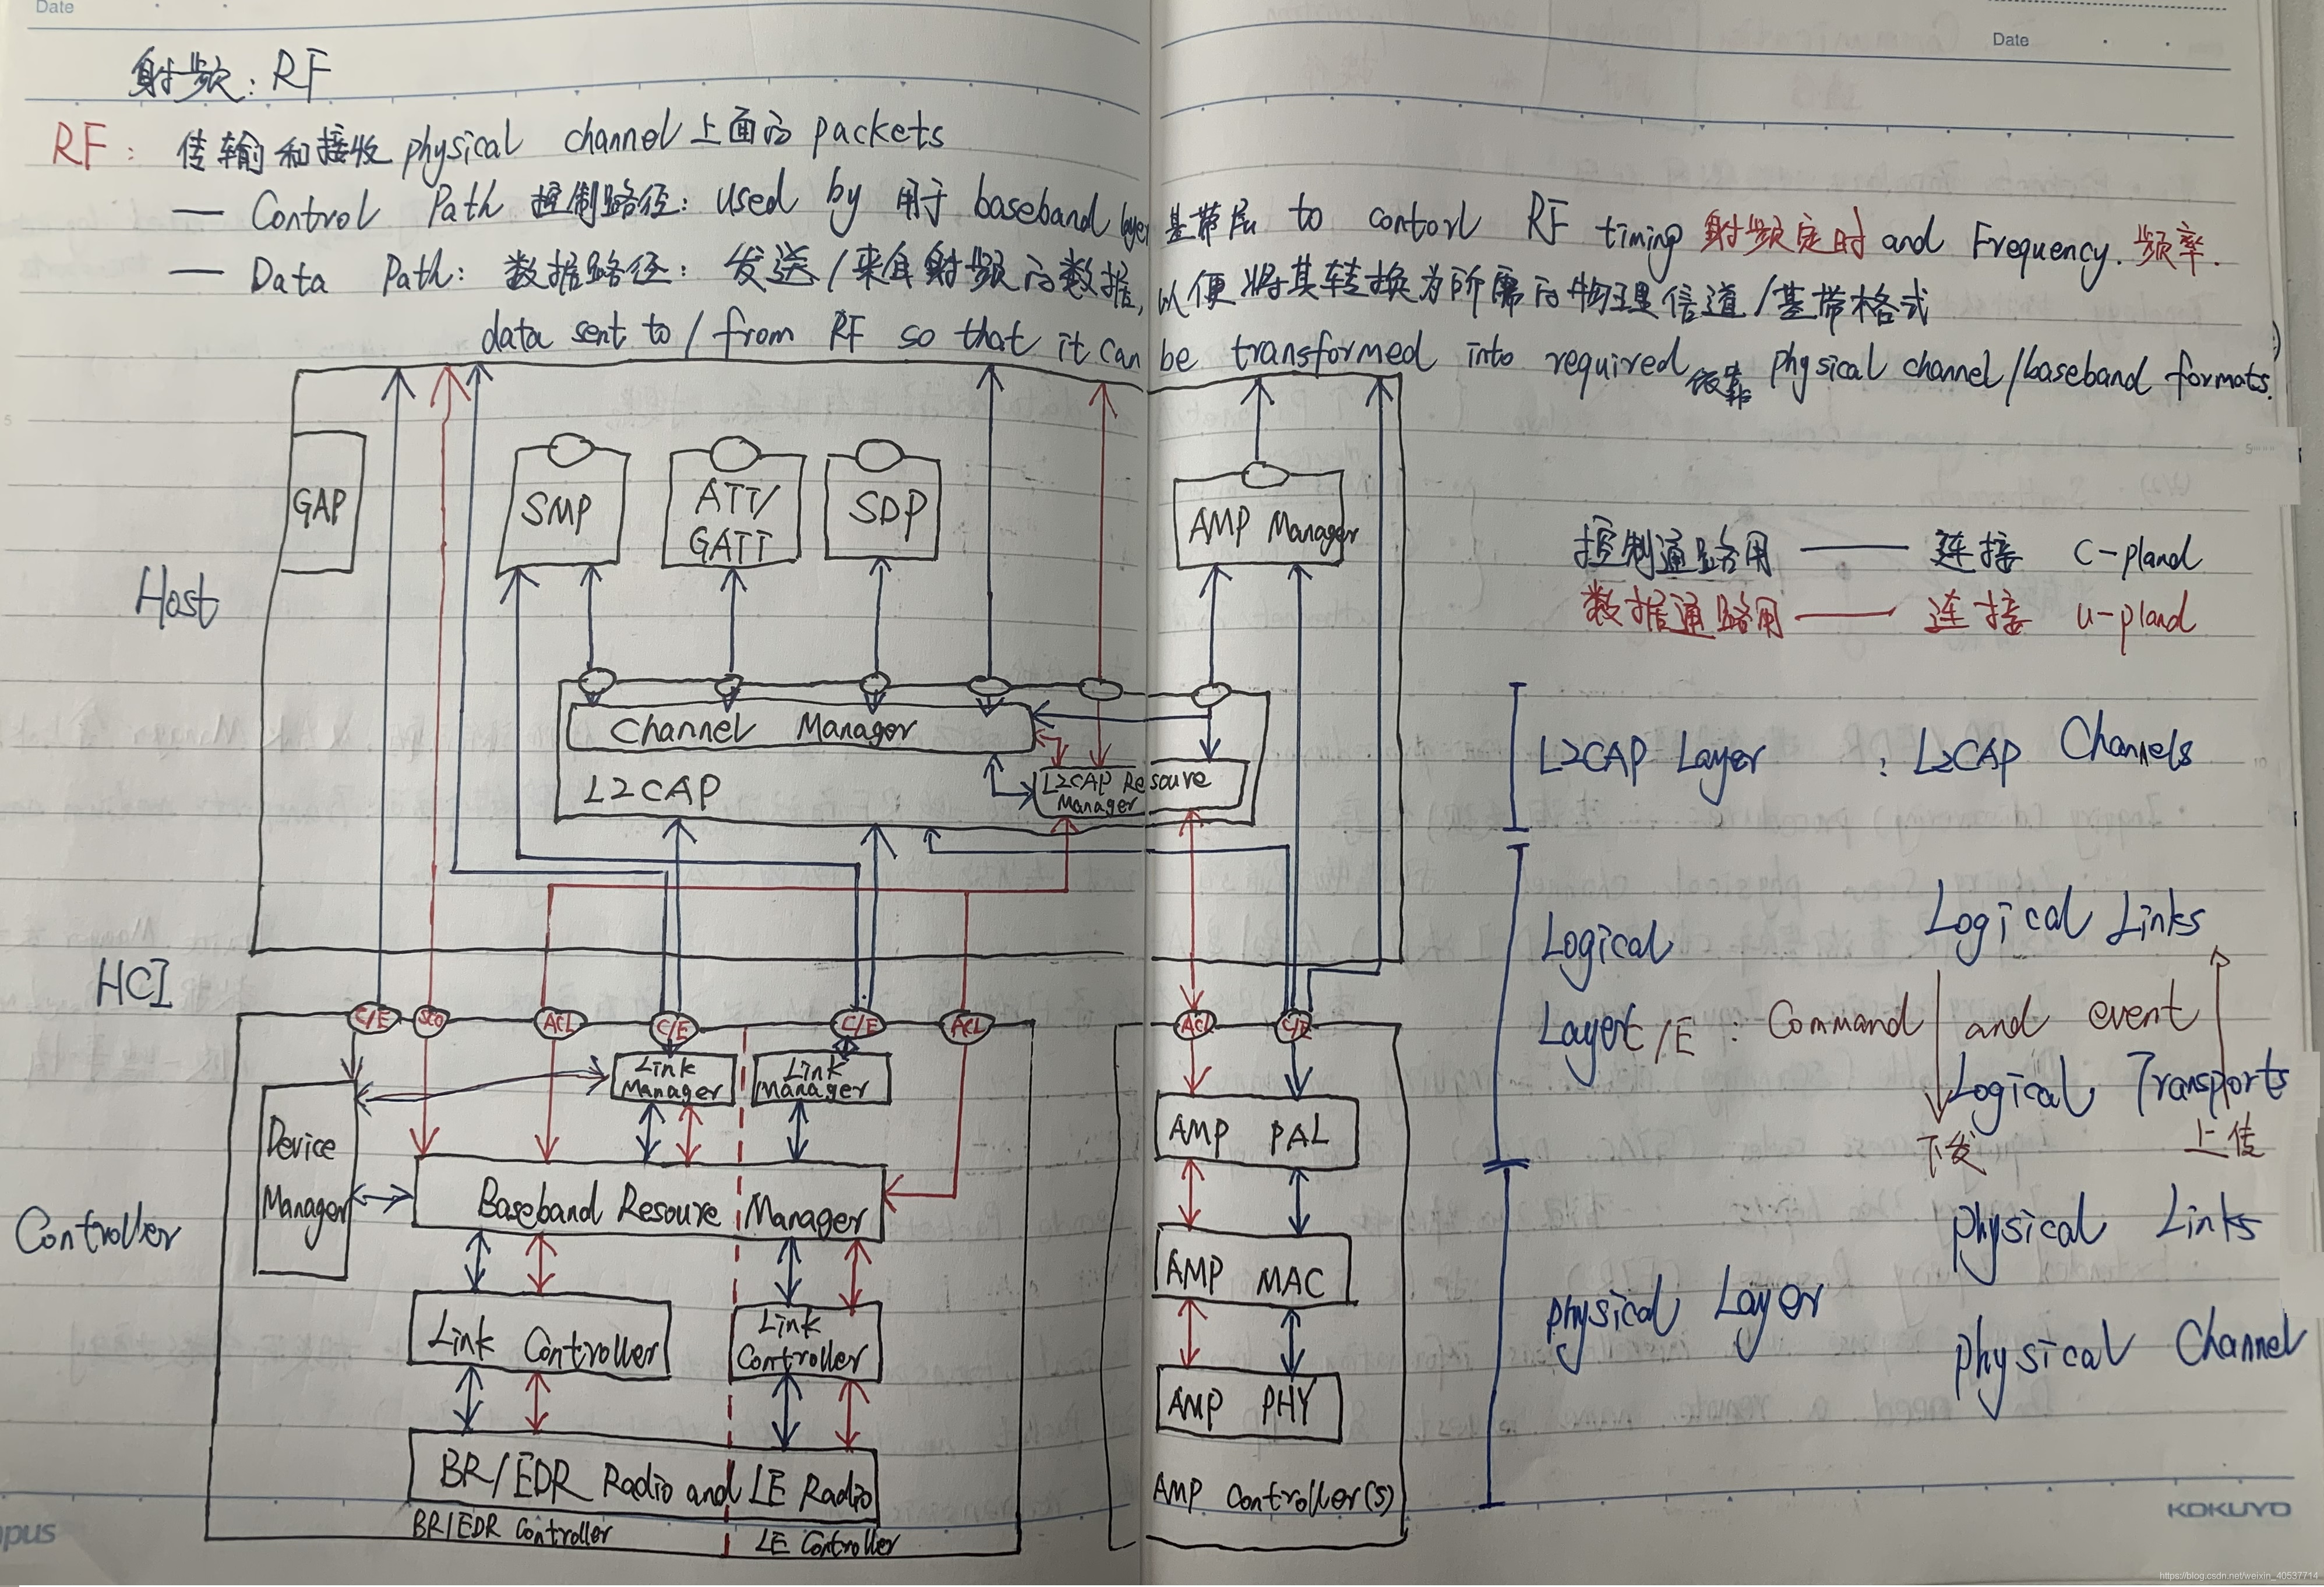 Date
Date
射频: RF
RF: 传输和接收 physical channel 上面的 packets
— Control Path 控制路径: used by 用于 baseband layer 基带层 to contorl RF timing 射频定时 and Frequency. 频率.
— Data Path: 数据路径: 发送/来自射频的数据, 以便将其转换为所需的物理信道/基带格式
data sent to / from RF so that it can be transformed into required 依靠 physical channel/baseband formats.
GAP
SMP
ATT/
GATT
SDP
AMP Manager
Host
控制通路用 —— 连接 C-pland
数据通路用 —— 连接 u-pland
Channel Manager
L2CAP
L2CAP Resoure
Manager
L2CAP Layer : L2CAP Channels
HCI
C/E
SCO
ACL
C/E
C/E
ACL
ACL
C/E
Logical
Layer
Logical Links
C/E : Command and event
Logical Transports
下发
上传
Link
Manager
Link
Manager
Device
Manager
Baseband Resoure Manager
Controller
Link Controller
Link
Controller
BR/EDR Radio and LE Radio
BR/EDR Controller
LE Controller
AMP PAL
AMP MAC
AMP PHY
AMP Controller(s)
physical Layer
physical Links
physical Channel
KOKUYO
pus
https://blog.csdn.net/weixin_40537714